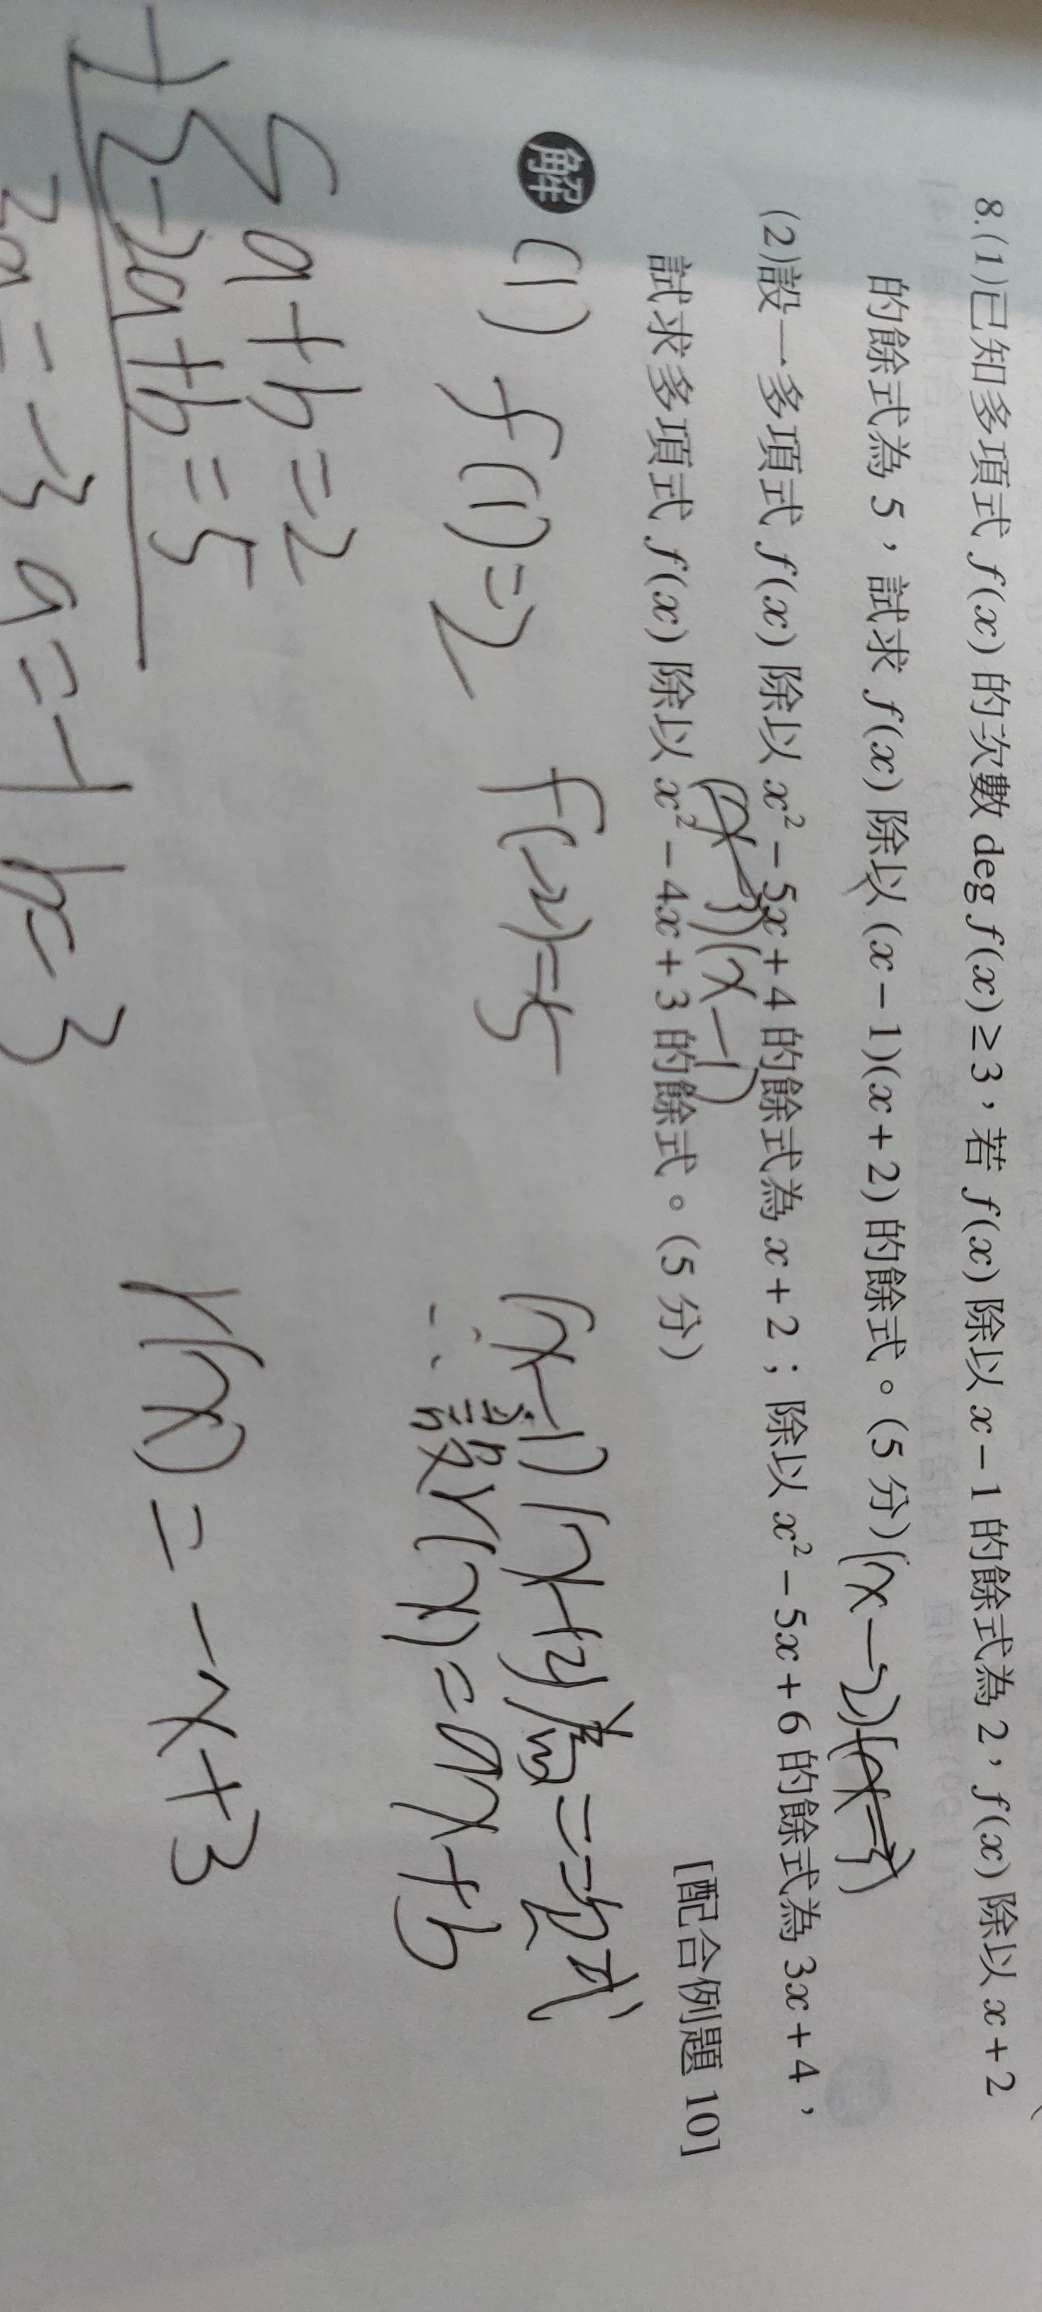 8.(1)已知多項式 f(x) 的次數 deg f(x) ≥ 3，若 f(x) 除以 x－1 的餘式為 2，f(x) 除以 x＋2
的餘式為 5，試求 f(x) 除以 (x－1)(x＋2) 的餘式。(5 分) (x－2)(x－3)
(2)設一多項式 f(x) 除以 x²－5x＋4 的餘式為 x＋2；除以 x²－5x＋6 的餘式為 3x＋4，
(x－3)(x－1)
試求多項式 f(x) 除以 x²－4x＋3 的餘式。(5 分)
[配合例題 10]
解 (1) f(1)=2 f(-2)=5 (x-1)(x+2)為二次式
∴設r(x)=ax+b
a+b=2
-2a+b=5
3a=-3 a=-1 b=3
r(x)=-x+3